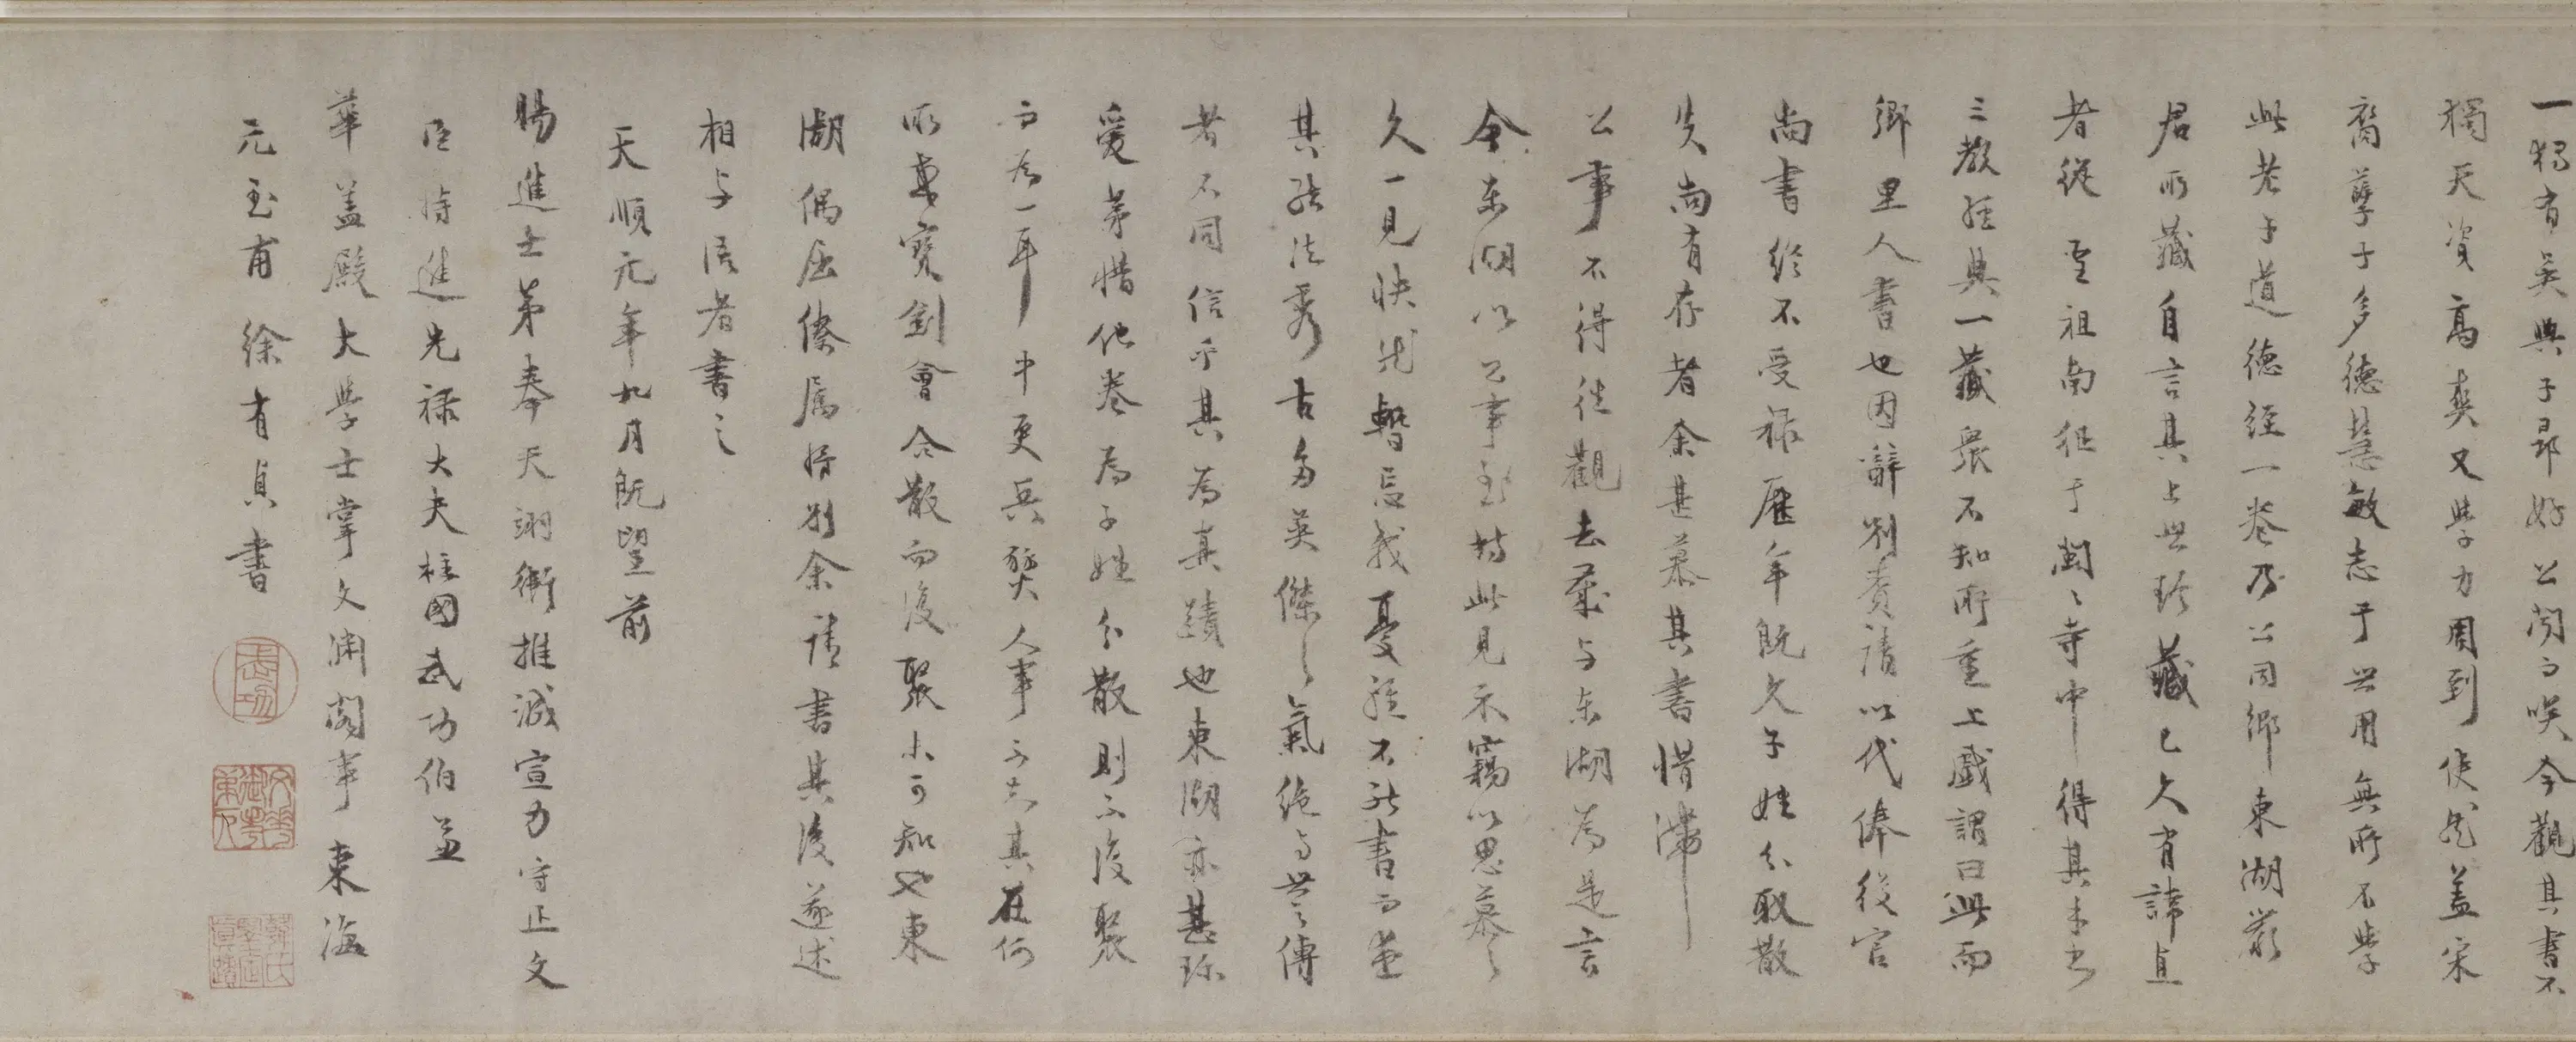 一獨有吳興子昂好公閱而嘆今觀其書不
獨天資高爽又學力周到使然蓋宋
裔孽子多德慧敏志于世用無所不學
此老子道德經一卷乃公同鄉東湖嚴
君所藏自言其上世珍藏已久有諱貞
者從 聖祖南征于閩閩寺中得其
三教經典一藏眾不知所重上戲謂曰此而
鄉里人書也因辭別賚請以代俸後官
尚書終不受祿歷年既久子姓分取散
失尚有存者余甚慕其書惜滯
公事不得往觀去歲與東湖為是言
今東湖以公事至特此見示竊以思慕之
久一見快然暫忘我憂雖不能書而
其能法秀古多英傑之氣絕與世之傳
者不同信乎其為真蹟也東湖亦甚珍
愛第惜他卷為子姓分散則不復聚
而為一耳 中更兵燹人事不知其在何
所惠寶劍會合散而復聚未可知也東
湖偶屈僚屬將別余請書其後遂述
相與語者書之
天順元年九月既望前
賜進士第奉天翊衛推誠宣力守正文
臣特進光祿大夫柱國武功伯兼
華蓋殿大學士掌文淵閣事東海
元玉甫 徐有貞書
武功
韓氏鑒定真蹟